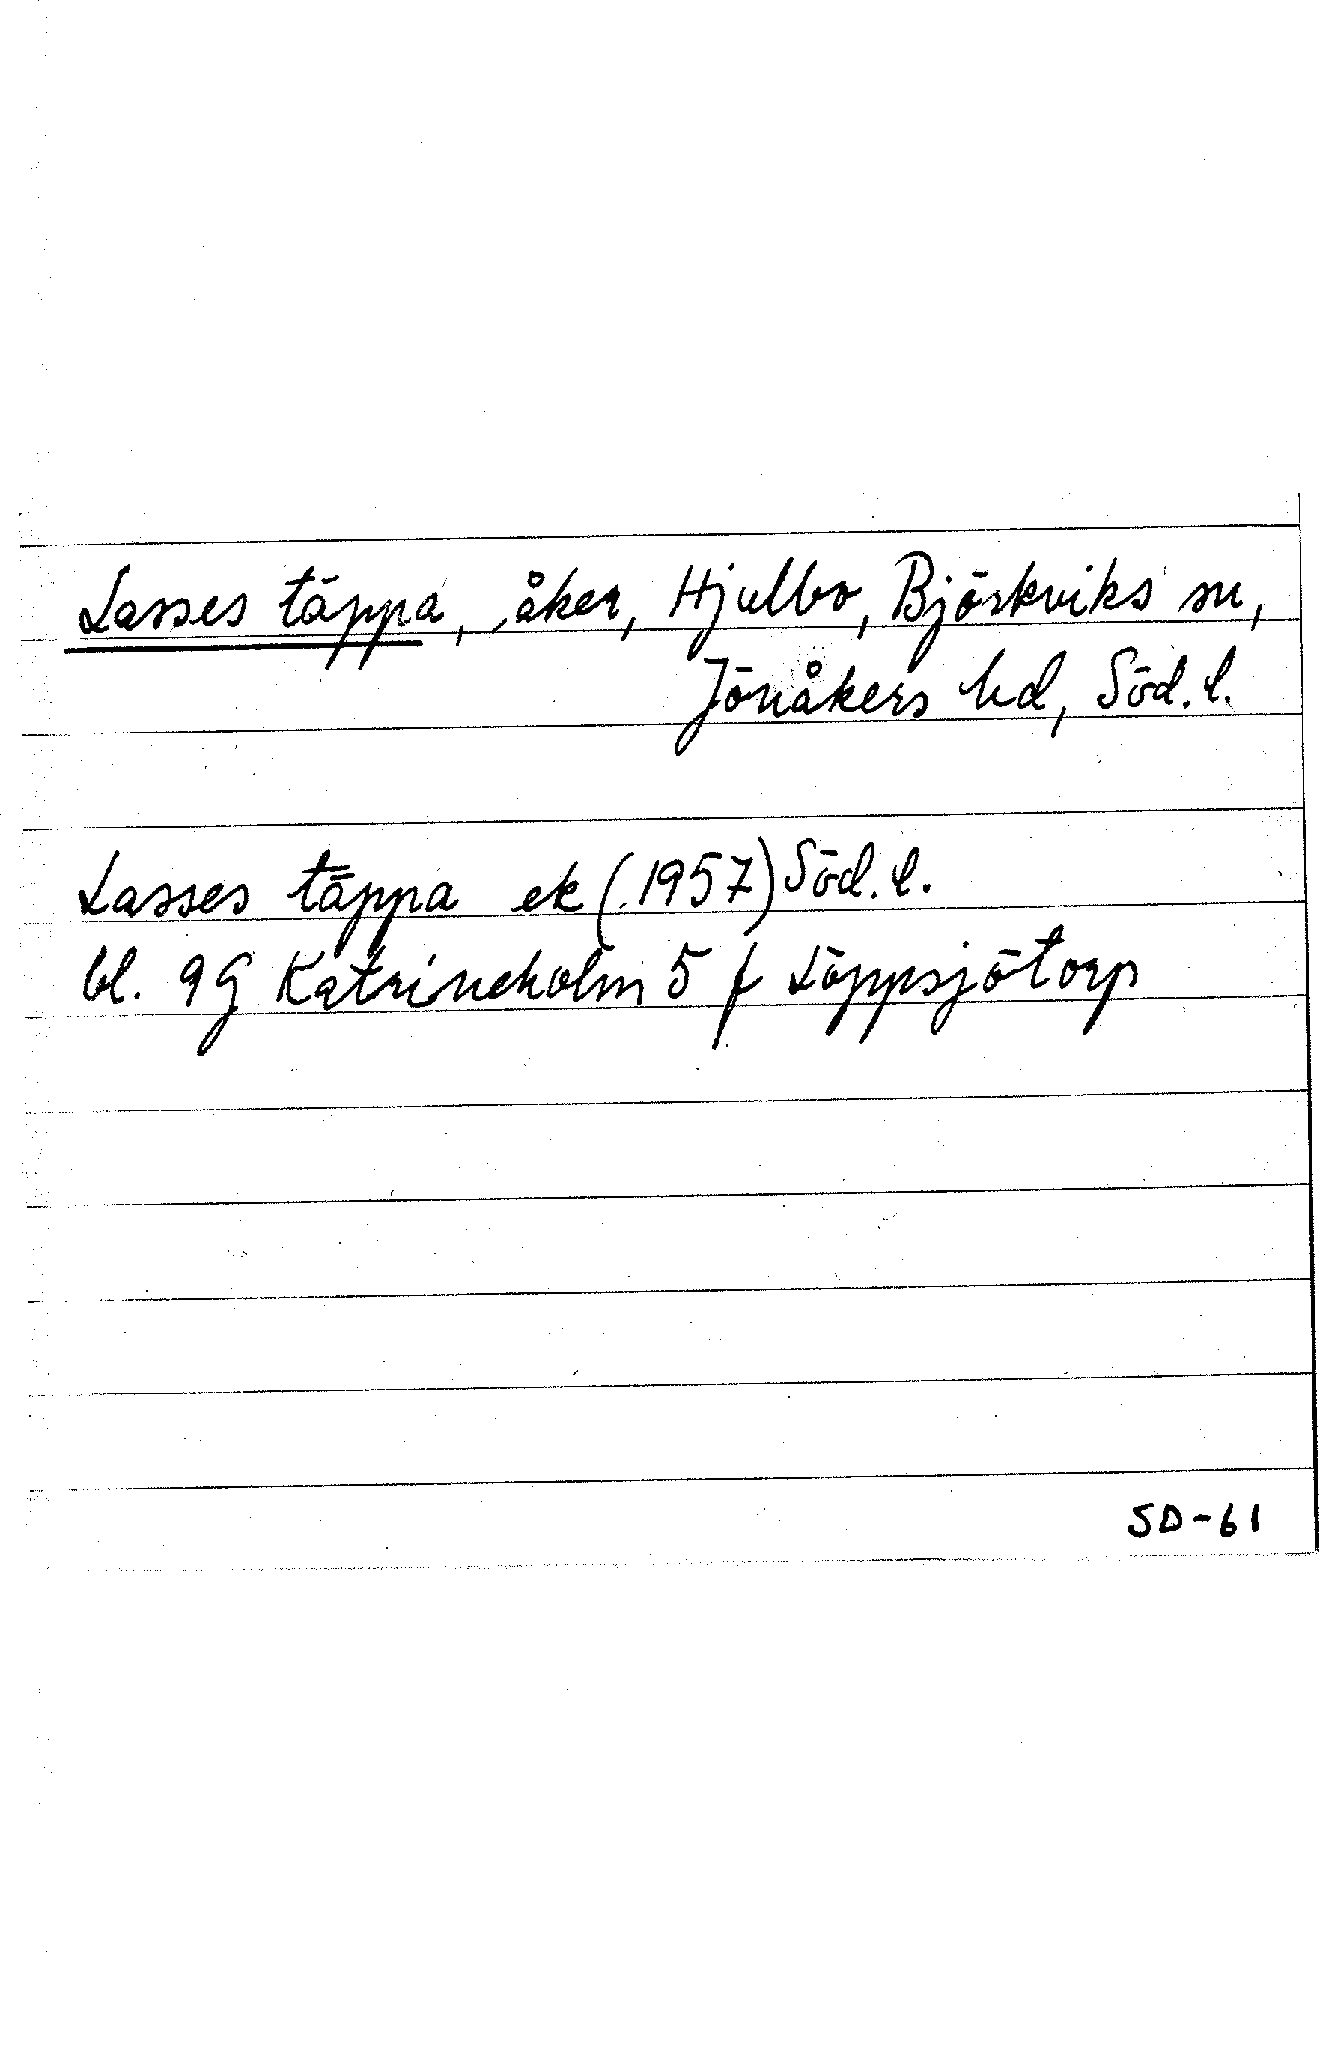 Lasses täppa, åker, Hjulbo, Björkviks sn,
Jönåkers hd, Söd. l.
Lasses täppa ek (1957) Söd. l.
bl. 9G Katrineholm 5 f Löppsjötorp
SD-61